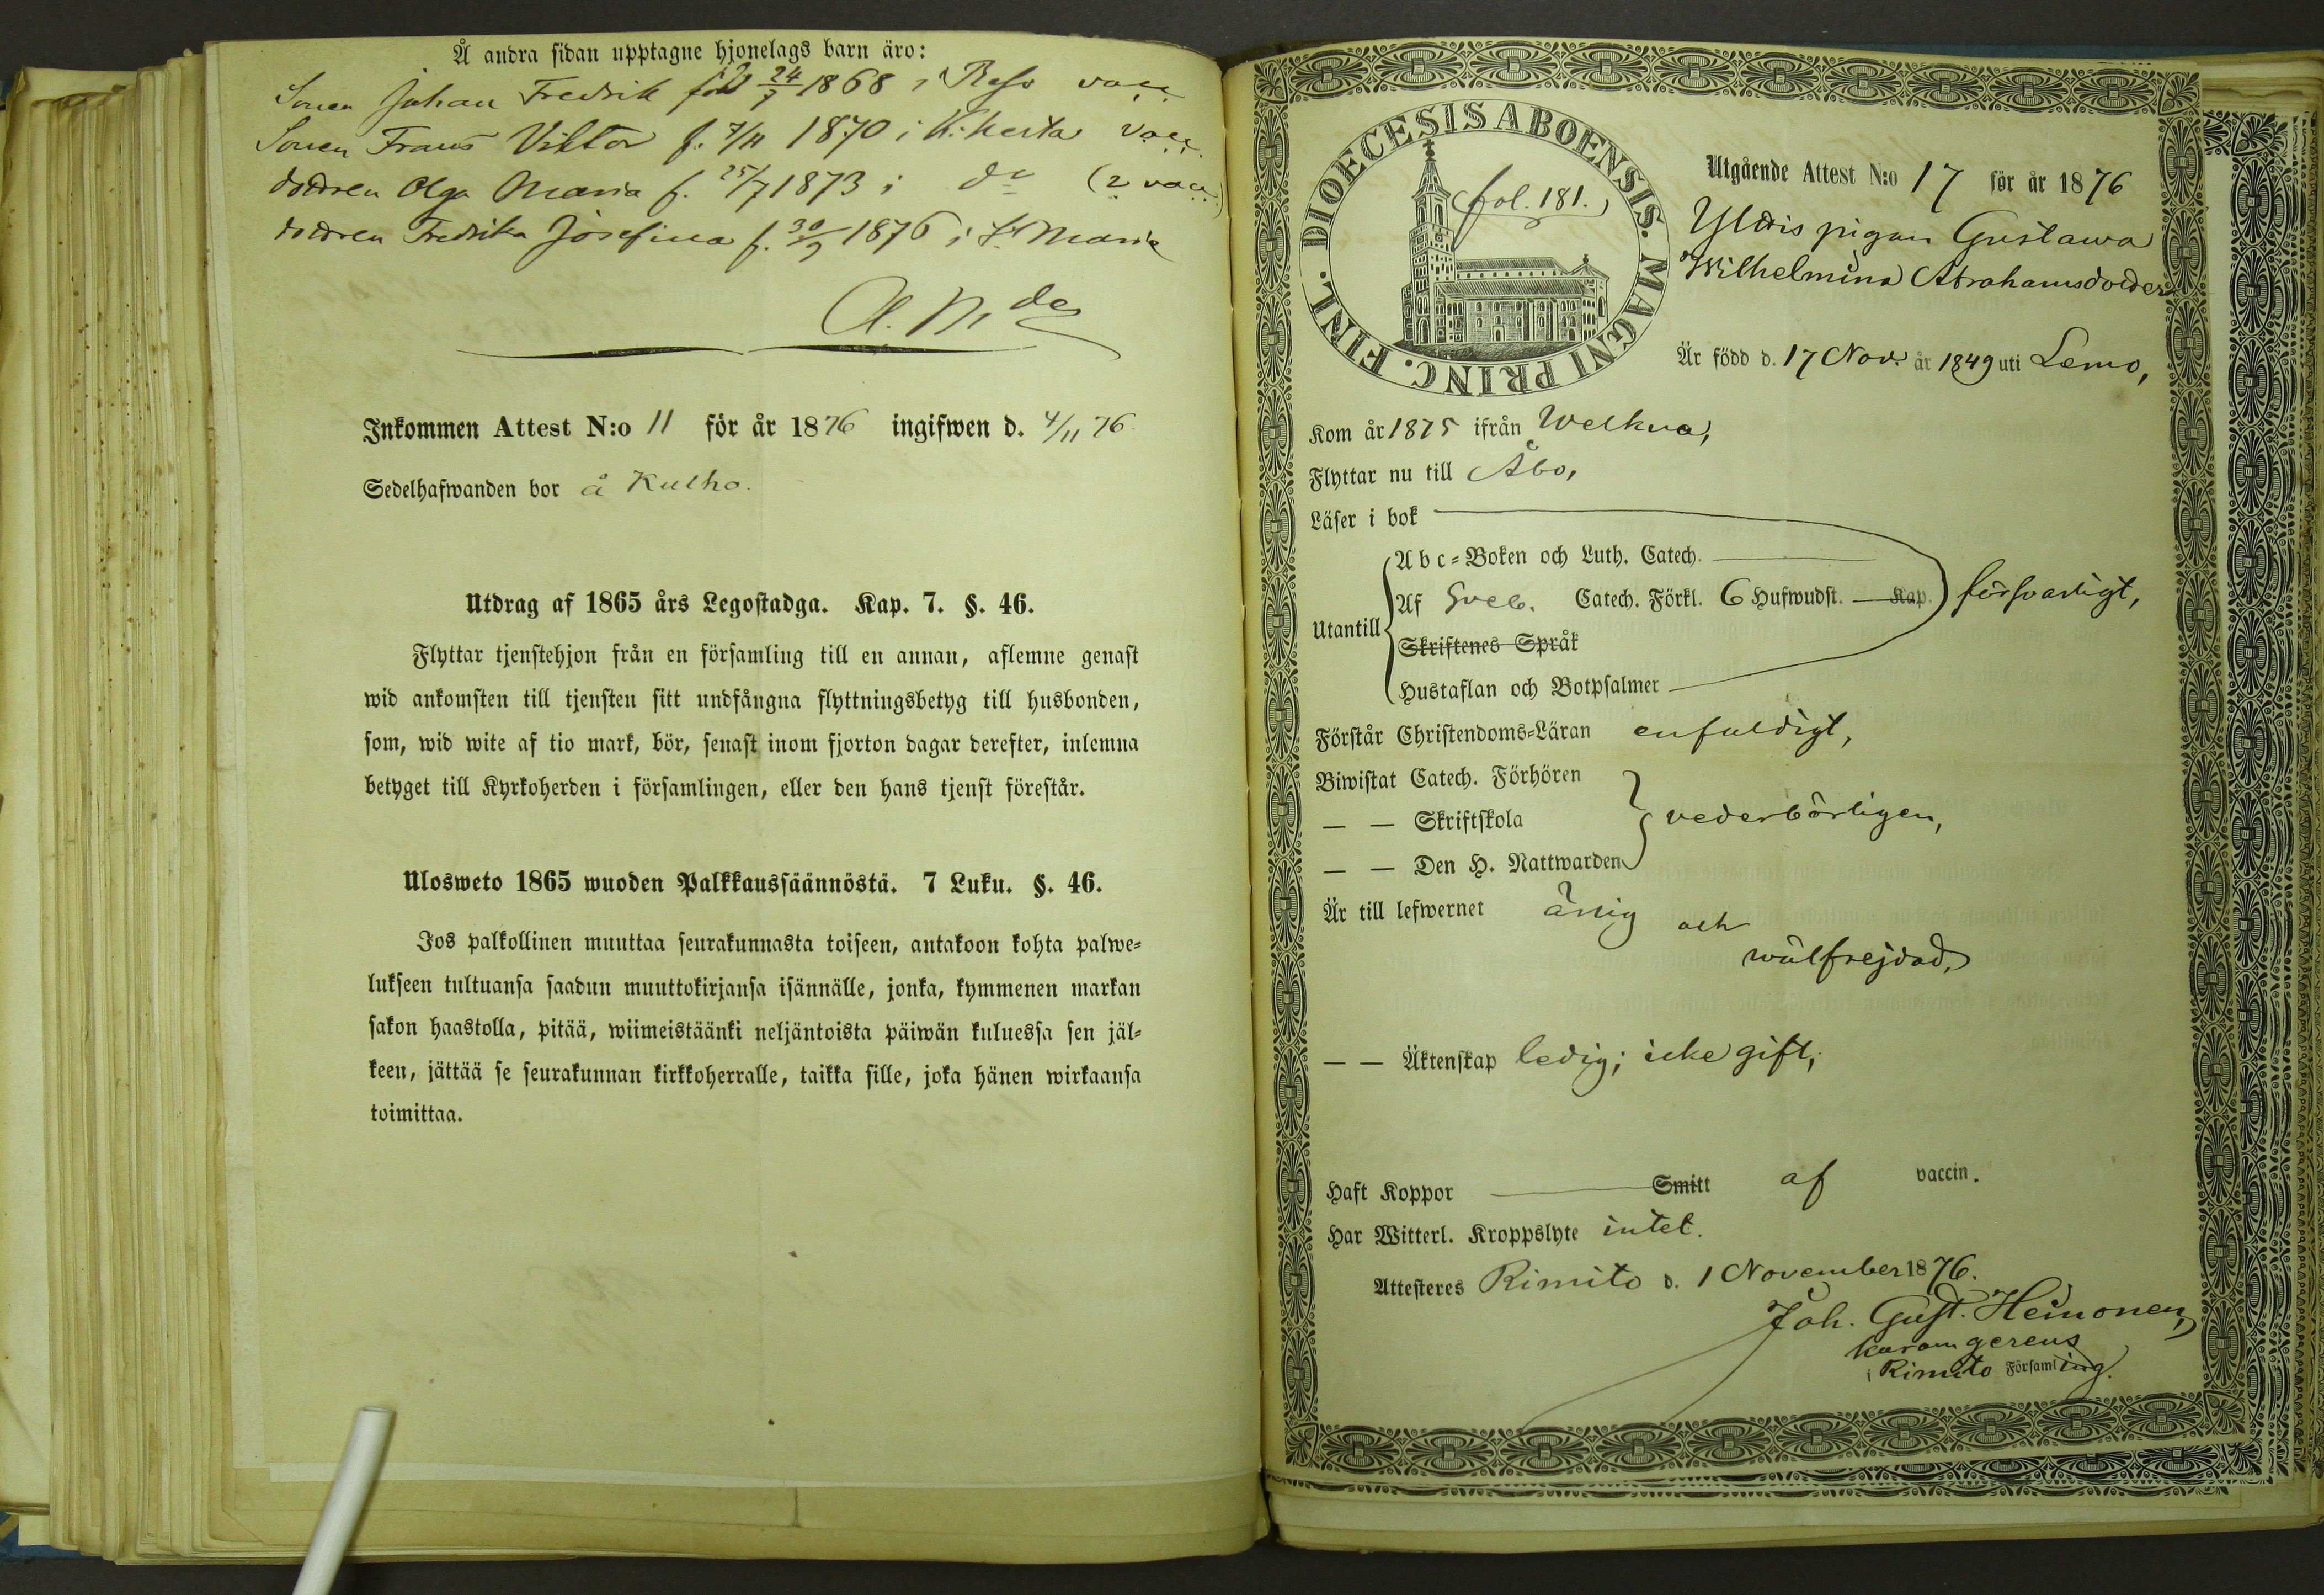 Å andra sidan upptagne hjonelags barn äro:
Sonen Johan Fredrik född 24/7 1868 i Reso vacc.
Sonen Frans Viktor f. 7/11 1870 i vacc.
dottren Olga Maria f. 25/7 1873 i do (2 vacc.)
dottren Fredrika Josefina f. 30/9 1876 i St Maria
Inkommen Attest N:o 11 för år 1876 ingifwen d. 4/11 76
Sedelhafwanden bor å Kulho.
Utdrag af 1865 års Legostadga. Kap. 7. §. 46.
Flyttar tjenstehjon från en församling till en annan, aflemne genast
wid ankomsten till tjensten sitt undfångna flyttningsbetyg till husbonden,
som, wid wite af tio mark, bör, senast inom fjorton dagar derefter, inlemna
betyget till Kyrkoherden i församlingen, eller den hans tjenst förestår.
Ulosweto 1865 wuoden Palkkaussäännöstä. 7 Luku. §. 46.
Jos palkollinen muuttaa seurakunnasta toiseen, antakoon kohta palwe-
lukseen tultuansa saadun muuttokirjansa isännälle, jonka, kymmenen markan
sakon haastolla, pitää, wiimeistäänki neljäntoista päiwän kuluessa sen jäl-
keen, jättää se seurakunnan kirkkoherralle, taikka sille, joka hänen wirkaansa
toimittaa.
DIOECESIS ABOENSIS. MAGNI PRINC. FINL.
fol. 181.
Utgående Attest N:o 17 för år 1876
pigan Gustawa
Wilhelmina Abrahamsdotter
Är född d. 17 Nov. år 1849 uti Lemo,
Kom år 1875 ifrån Welkua,
Flyttar nu till Åbo,
Läser i bok
Utantill
Abc-Boken och Luth. Catech.
Af Sveb. Catech. Förkl. 6 Hufwudst. Kap.
försvarligt,
Skriftenes Språk
Hustaflan och Botpsalmer
Förstår Christendoms-Läran enfaldigt,
Biwistat Catech. Förhören
— — Skriftskola
vederbörligen,
— — Den H. Nattwarden
Är till lefwernet ärlig och
wälfrejdad,
— — Äktenskap ledig; icke gift,
Haft Koppor Smitt af vaccin.
Har Witterl. Kroppslyte intet.
Attesteres Rimito d. 1 November 1876.
Joh. Gust. Heinonen,
curam gerens
i Rimito Församling.